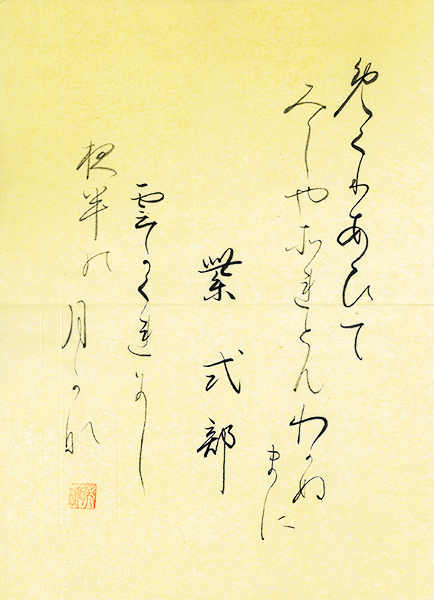 めくりあひて
みしやそれとんわかぬ
まに
紫式部
雲かくれにし
夜半の月かな